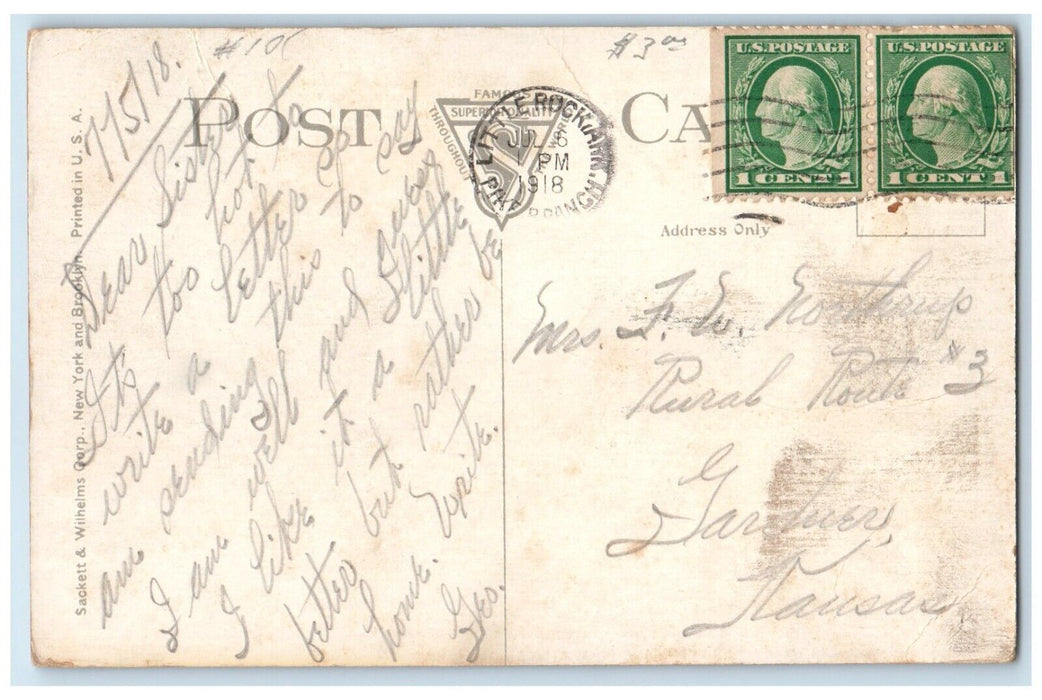 #10
$3.00
POST CA
FAMOUS
SUPERIOR QUALITY
THROUGHOUT
LITTLE ROCK, ARK.
JUL 6
PM
1918
PIKE BRANCH
U.S. POSTAGE
1 CENT 1
U.S. POSTAGE
1 CENT 1
Address Only
Sackett & Wilhelms Corp., New York and Brooklyn. Printed in U. S. A.
7/5/18.
Dear Sister
Its too hot to
write a letter so
am sending this to say
I am well and guess
I like it a little
better but rather be
home. Write.
Geo.
Mrs. F. W. Northrup
Rural Route #3
Gardner,
Kansas.